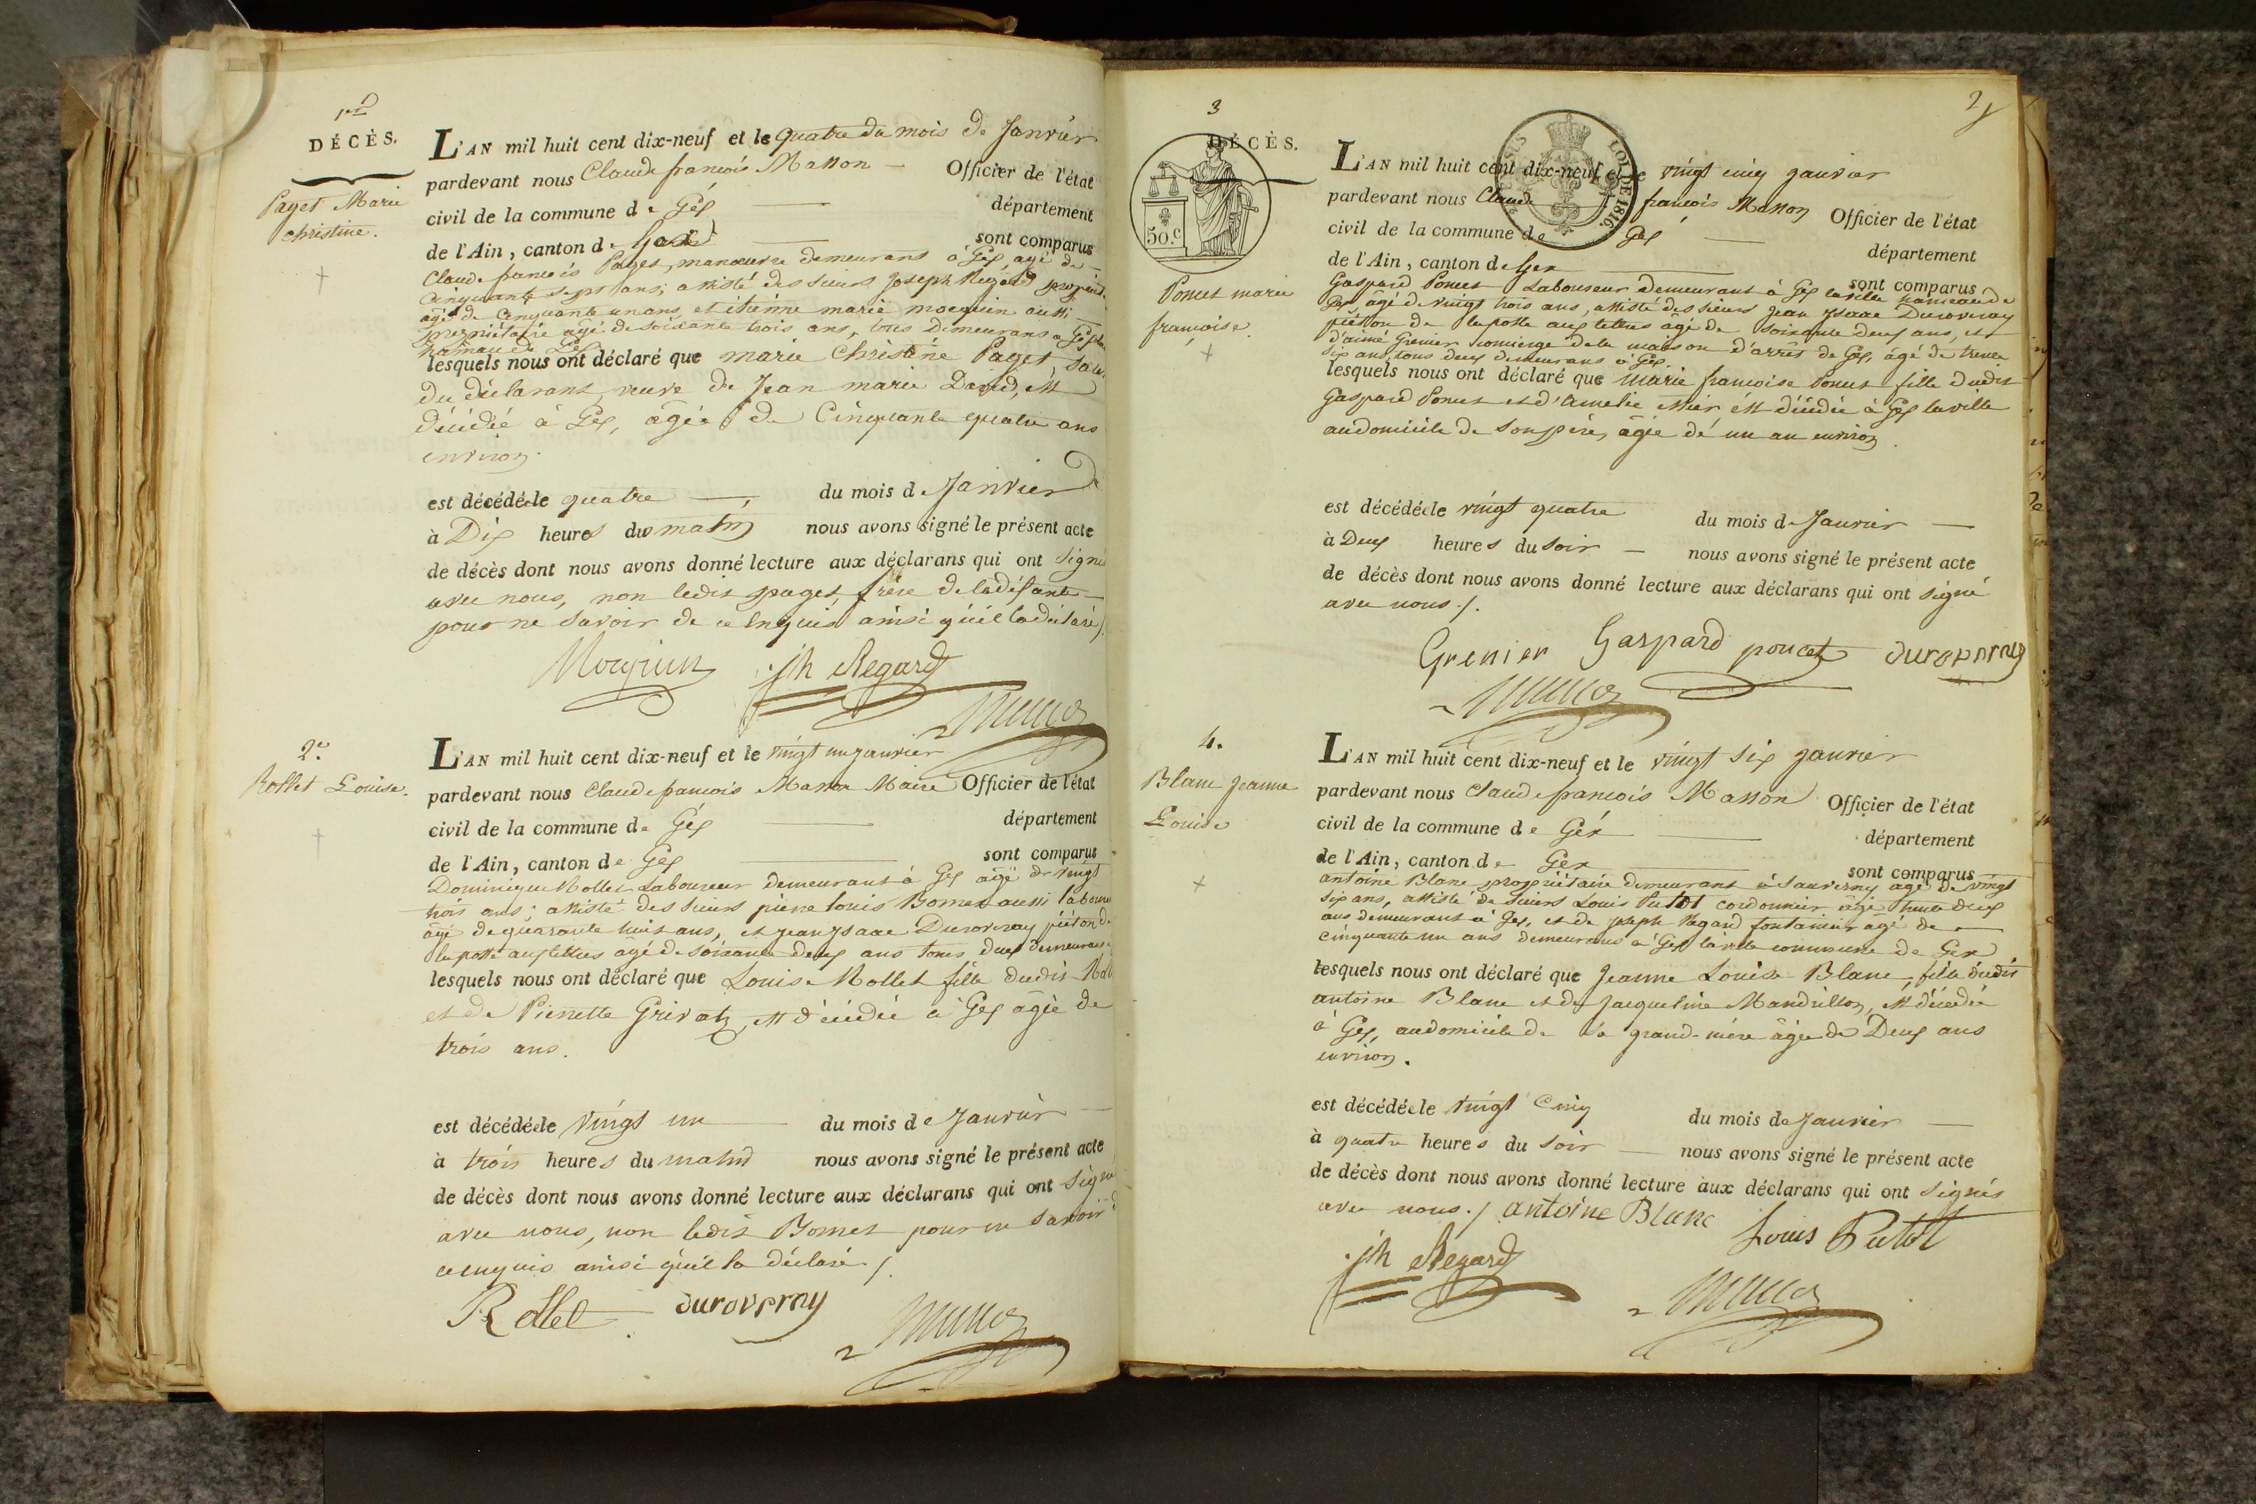 1er
DÉCÈS.
Paget Marie
christine.
L'AN mil huit cent dix-neuf et le quatre du mois de Janvier
pardevant nous Claude francois Masson Officier de l'état
civil de la commune de Géx département
de l'Ain, canton de Gex sont comparus
Claude francois Paget, manœuvre demeurant à Gex agé de
cinquante sept ans, assisté des sieurs Joseph Regard propriét.
agé de cinquante un ans, et etienne marie mocquin aussi
propriétaire agé de soixante trois ans, tous demeurans a Gex
hameau de
lesquels nous ont déclaré que marie Christine Paget, sœur
du déclarant, veuve de Jean marie David, est
décédée à Gex, âgée de Cinquante quatre ans
environ.
est décédée le quatre du mois de Janvier
à Dix heures du matin nous avons signé le présent acte
de décès dont nous avons donné lecture aux déclarans qui ont signé
avec nous, non ledit paget frère de la défunte
pour ne savoir de ce enquis ainsi qu'il l'a déclaré /.
Mocquin jh Regard
2e.
Rollet Louise.
L'AN mil huit cent dix-neuf et le vingt un janvier
pardevant nous Claude francois Masson Maire Officier de l'état
civil de la commune de Géx département
de l'Ain, canton de Gex sont comparus
Dominique Rollet Laboureur demeurant à Gex agé de vingt
trois ans; assisté des sieurs pierre louis Bornet aussi laboureur
agé de quarante huit ans, et jean ysaac Duroveray piéton de
la poste aux lettres âgé de soixante deux ans tous deux demeurans
lesquels nous ont déclaré que Louise Rollet fille dudit Roll
et de Pierrette Grivat, est décédée à Gex âgée de
trois ans.
est décédée le vingt un du mois de Janvier
à trois heures du matin nous avons signé le présent acte
de décès dont nous avons donné lecture aux déclarans qui ont signé
avec nous, non ledit Bornet pour ne savoir
ce enquis ainsi qu'il l'a déclaré /.
Rollet duroveray
3
2
DÉCÈS.
50.c
LOI DE 1816.
Poncet marie
françoise
L'AN mil huit cent dix-neuf et le vingt cinq janvier
pardevant nous Claude francois Masson Officier de l'état
civil de la commune de Gex département
de l'Ain, canton de Gex sont comparus
Gaspard Poncet Laboureur demeurant à Gex la ville hameau de
Gex âgé de vingt trois ans, assisté des sieurs jean ysaac Duroveray
piéton de la poste aux lettres âgé de soixante deux ans, et
d'aimé Grenier concierge de la maison d'arrêt de Gex, âgé de trente
six ans, tous deux demeurans à Gex.
lesquels nous ont déclaré que Marie francoise Poncet fille dudit
Gaspard Poncet et d'Amelie est décédée à Gex la ville
au domicile de son père, agée de un an environ.
est décédée le vingt quatre du mois de Janvier
à Deux heures du soir nous avons signé le présent acte
de décès dont nous avons donné lecture aux déclarans qui ont signé
avec nous /.
Grenier Gaspard poncet duroveray
4.
Blanc jeanne
Louise
L'AN mil huit cent dix-neuf et le vingt six janvier
pardevant nous Claude francois Masson Officier de l'état
civil de la commune de Géx département
de l'Ain, canton de Gex sont comparus
antoine Blanc propriétaire demeurant à Sauverny agé de vingt
six ans, assisté de sieurs Louis Putot cordonnier âgé trente deux
ans demeurant à Gex, et de joseph Regard fontainier âgé de
cinquante un ans demeurans à Gex la ville commune de Gex
lesquels nous ont déclaré que Jeanne Louise Blanc, fille dudit
antoine Blanc et de Jacqueline Mandrillon, est décédée
à Gex, au domicile de sa grand-mère âgée de Deux ans
environ.
est décédée le vingt Cinq du mois de Janvier
à quatre heures du soir nous avons signé le présent acte
de décès dont nous avons donné lecture aux déclarans qui ont signés
avec nous / antoine Blanc Louis Putot
jh Regard